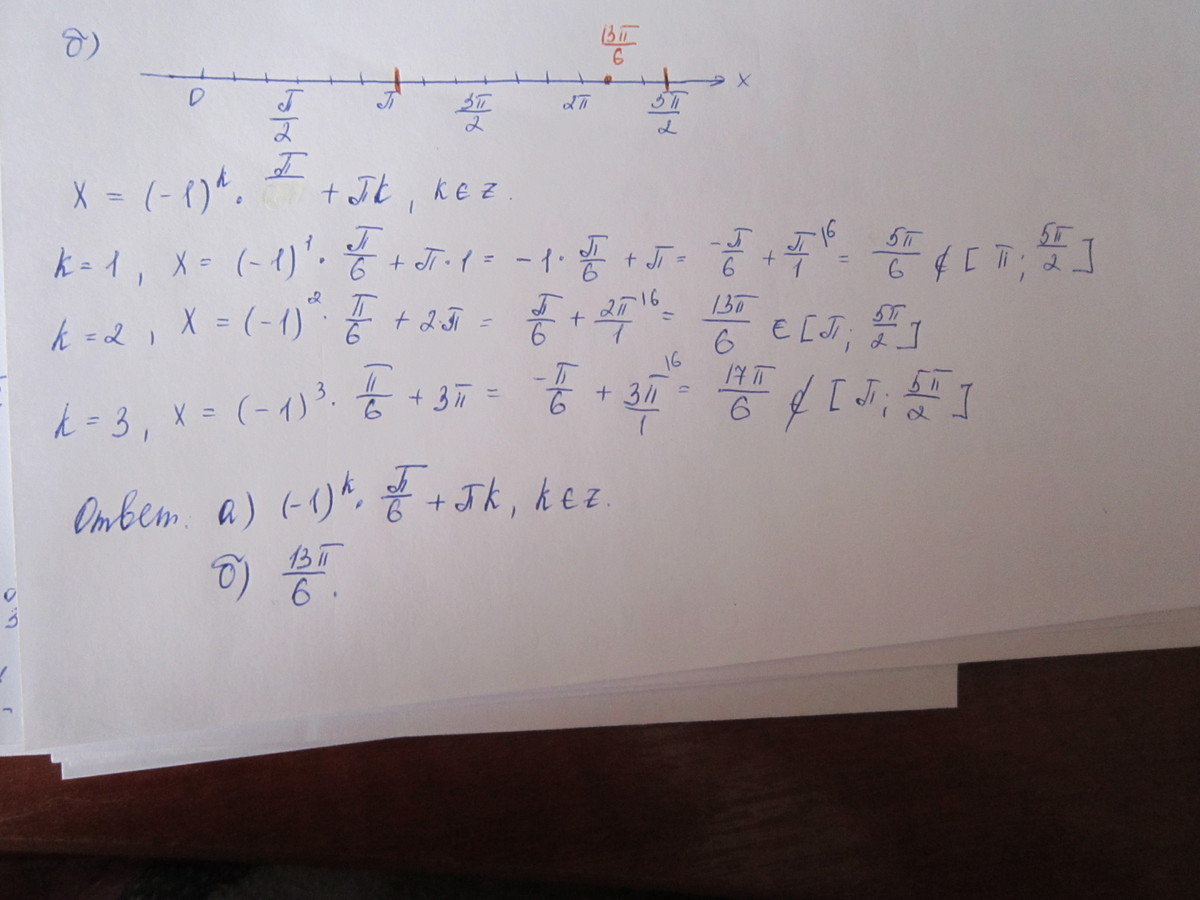 б)
13π/6
0 π/2 π 3π/2 2π 5π/2 x
x = (-1)^k · π/ + πk, k ∈ z.
k = 1, x = (-1)^1 · π/6 + π·1 = -1 · π/6 + π = -π/6 + π/1 \6 = 5π/6 ∉ [π; 5π/2]
k = 2, x = (-1)^2 · π/6 + 2·π = π/6 + 2π/1 \6 = 13π/6 ∈ [π; 5π/2]
k = 3, x = (-1)^3 · π/6 + 3π = -π/6 + 3π/1 \6 = 17π/6 ∉ [π; 5π/2]
Ответ. а) (-1)^k · π/6 + πk, k ∈ z.
б) 13π/6.